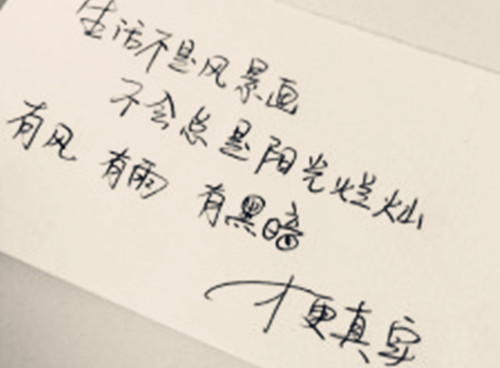 生活不是风景画
不会总是阳光烂灿
有风 有雨 有黑暗
才更真实